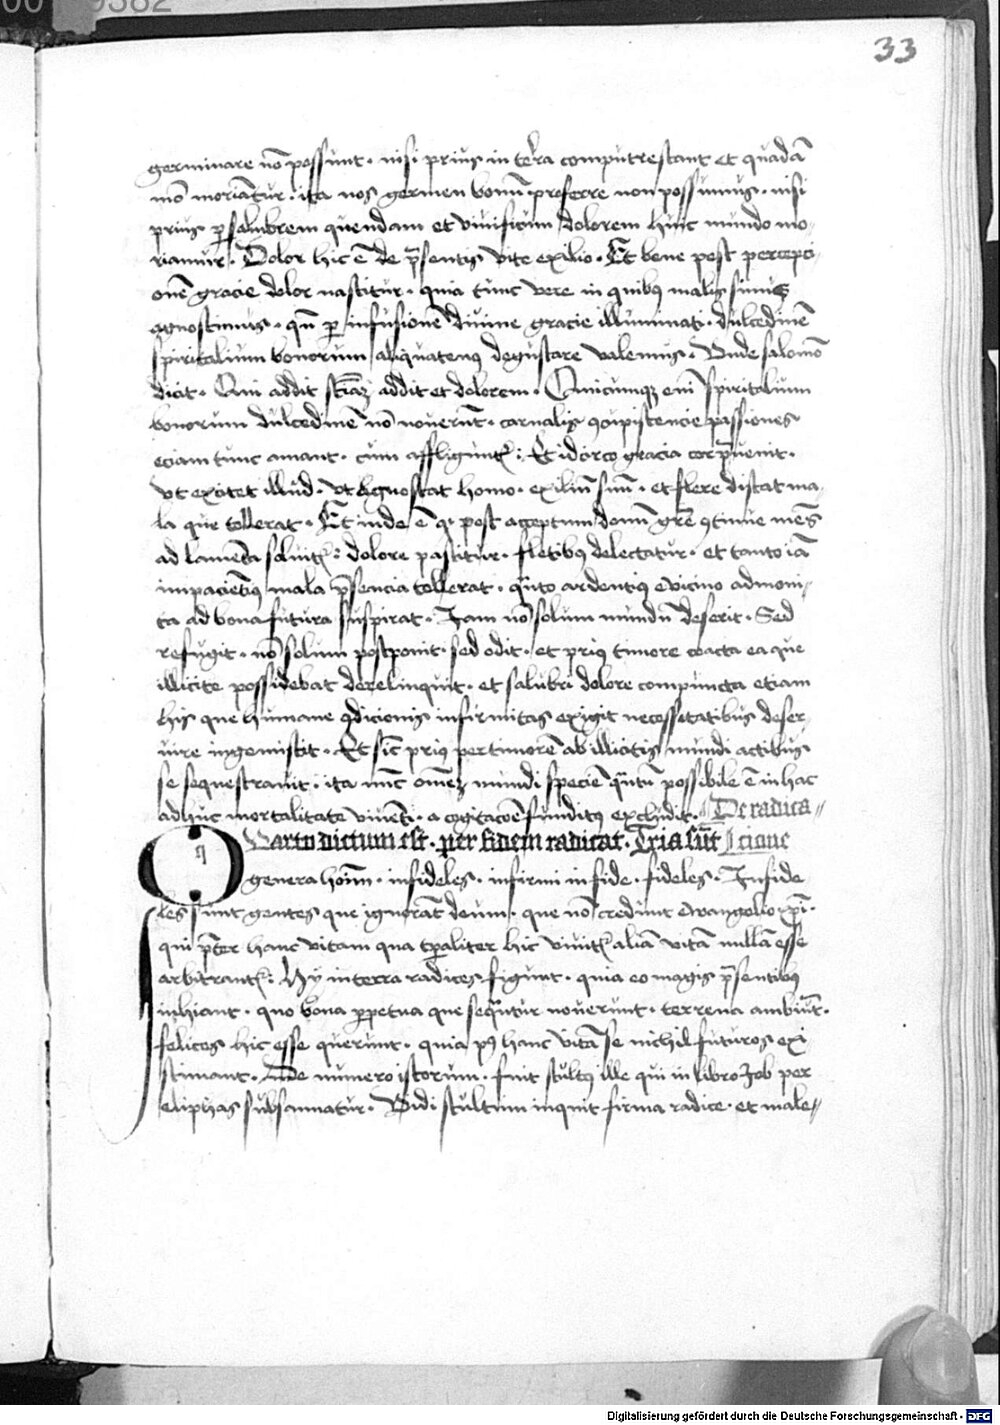 33
germinare nō possunt · nisi prius in terra computrescant et quadā
mō moriātur · ita nos germen bonū proferre non possumus · nisi
prius p salubrem quendam et viuificum dolorem huic mundo mo-
riamur · Dolor hic ē de p̄sentis vite exilio · Et bene post percepci-
onē gracie dolor nascitur · quia tunc vere in quibꝰ malis simus
agnoscimus · qn̄ per infusionē diuine gracie illuminati · dulcedinē
spiritalium bonorum aliquatenꝰ degustare valemus · Vnde salomō
dicit · Qui addit sciāꝫ addit et dolorem · Quicumqꝫ em̄ spiritalium
bonorum dulcedinē nō nouerūt · carnalis ꝯcupiscencie passiones
eciam tunc amant · cum affliguntʳ : Et idcirco gracia cor p̄uenit ·
vt excitet illud · vt agnoscat homo · exiliū suū · et flere discat ma-
la que tollerat · Et inde ē qꝫ post acceptum donū gr̄e ꝯtinue mēs
ad lamēta soluitʳ : dolore pascitur · fletibꝰ delectatur · et tanto iā
impaciētiꝰ mala p̄sencia tollerat · qᵃnto ardentiꝰ e vicino admoni-
ta ad bona futura suspirat · Iam nō solum mundū deserit · Sed
refugit · nō solum postponit · sed odit · et priꝰ timore coacta ea que
illicite possidebat derelinquit · et salubri dolore compuncta etiam
his que humane ꝯdicionis infirmitas exigit necessitatibus deser-
uire ingemiscit · Et sic priꝰ per timorē ab illicitis mundi actibus
se sequestrauit · ita nūc omēꝫ mundi speciē qᵃntū possibile ē in hac
adhuc mortalitate viuēti · a cogitacōe funditꝰ excludit · De radica-
Quarto dictum est · per fidem radicat · Tria sūt cione
genera hoīm · infideles · infirmi in fide · fideles · Infide
les sunt gentes que ignorāt deum · que nō credunt Ewangelio xp̄i ·
qui p̄ter hanc vitam qua tp̄aliter hic viuitʳ aliā vitā nullā esse
arbitrantʳ : Hÿ in terra radices figunt · quia eo magis p̄sentibꝰ
inhiant · quo bona ꝑpetua que sequūtur nouerunt · terrena ambiūt ·
felices hic esse querunt · quia pꝰ hanc vitā se nichil futuros exi
stimant · Inde numero istorum · fuit stultꝰ ille qui in libro Job per
eliphas subsannatur · Vidi stultum inquit firma radice · et male-
Digitalisierung gefördert durch die Deutsche Forschungsgemeinschaft - DFG